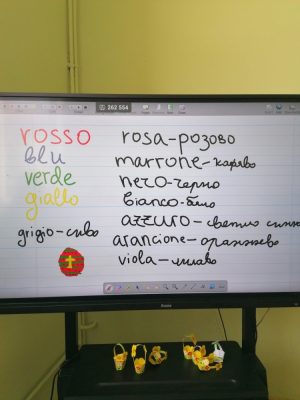 262 554
rosso
blu
verde
giallo
grigio-сиво
rosa-розово
marrone-кафяво
nero-черно
bianco-бяло
azzuro-светло синьо
arancione-оранжево
viola-лилаво